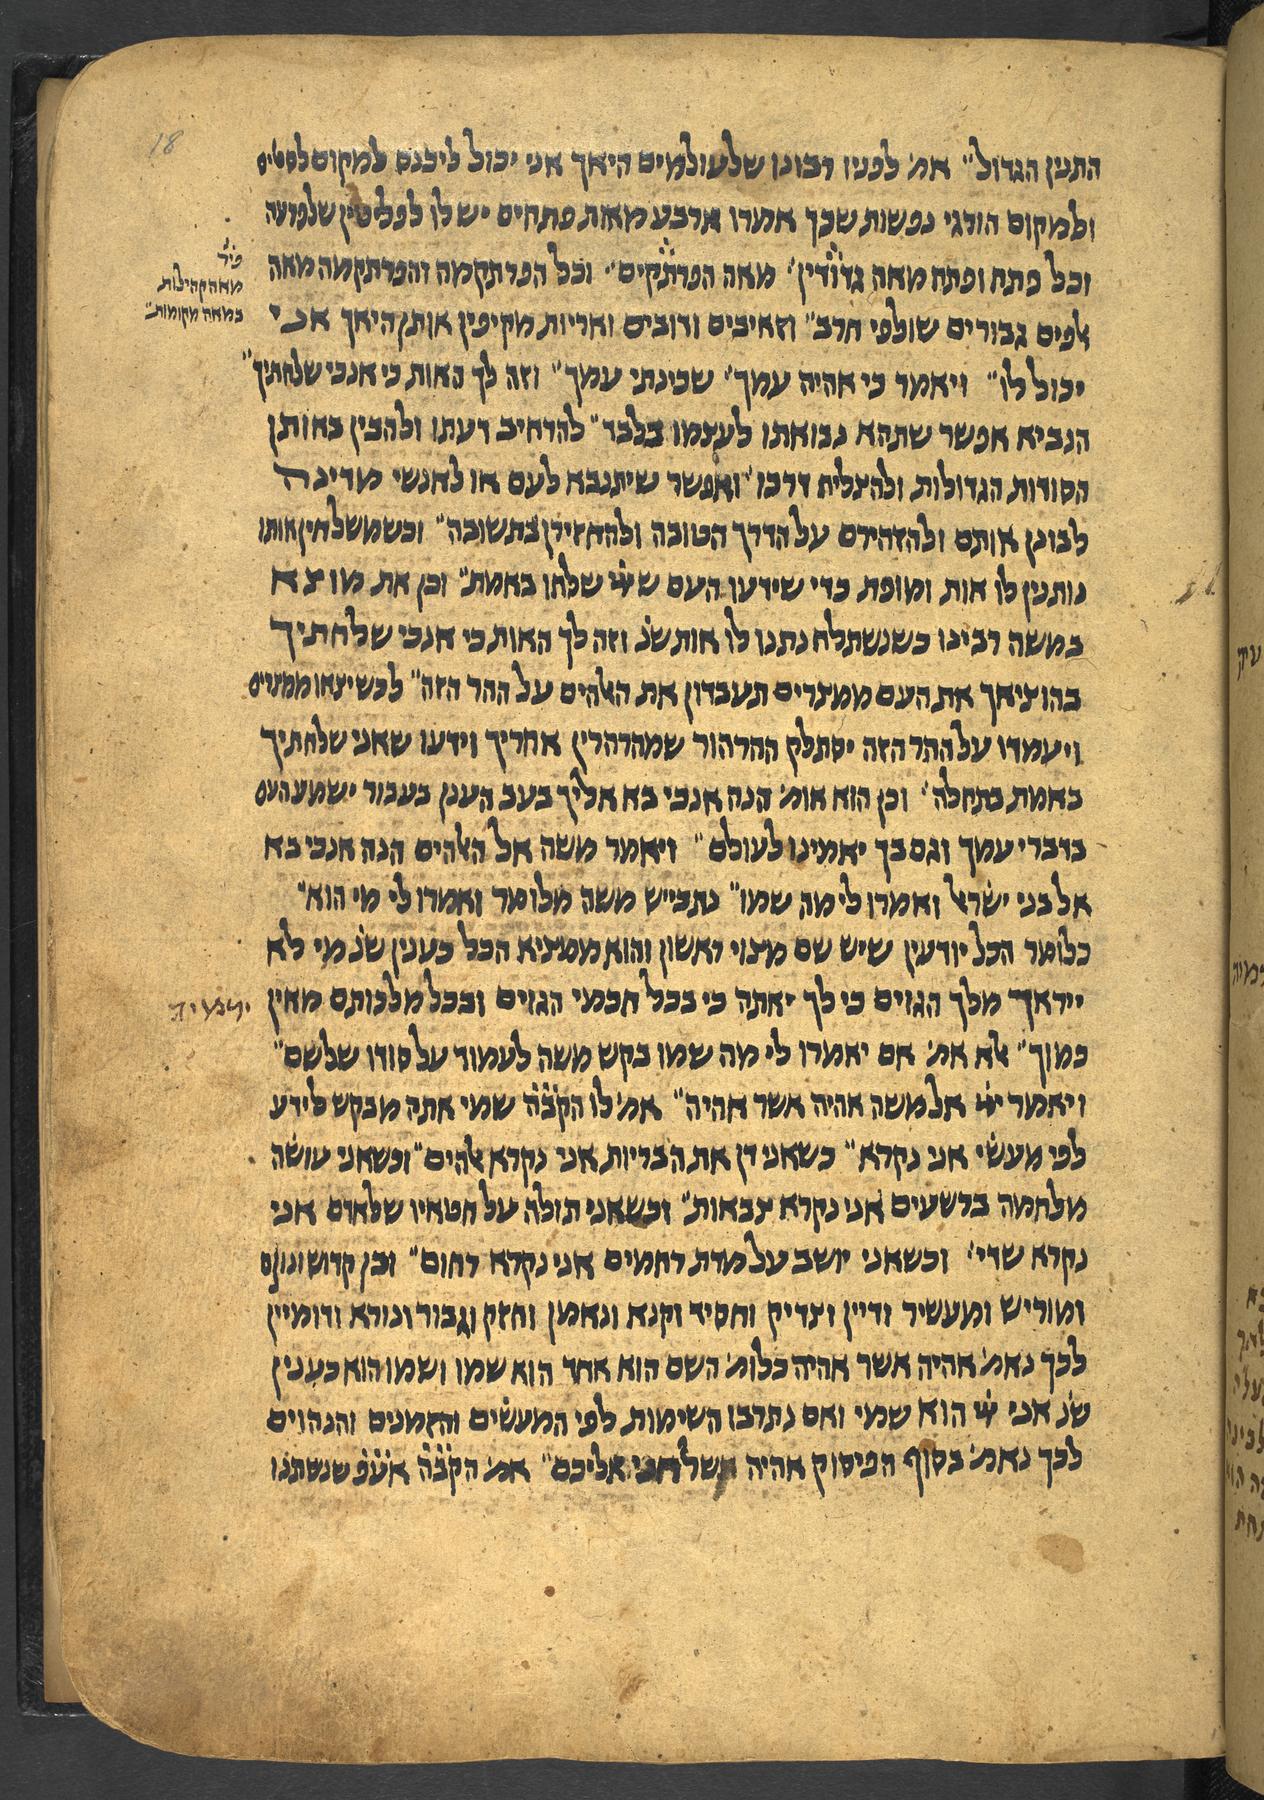 18
התנין הגדול״ אמ׳ לפניו רבונו שלעולמים היאך אני יכול ליכנס למקום לסטים
ולמקום הורגי נפשות שכך אמרו ארבע מאות פתחים יש לו לפלטין שלפרעה
וכל פתח ופתח מאה גדודין׳ מאה הפרתקים׳ וכל הפרתקמה והפרתקמה מאה
פיר׳
מאה קהילות
במאה מקומות״
אלפים גבורים שולפי חרב״ וזאיבים ודובים ואריות מקיפין אותן היאך אני
יכול לו״ ויאמר כי אהיה עמך׳ שכינתי עמך״ וזה לך האות כי אנכי שלחתיך״
הנביא אפשר שתהא נבואתו לעצמו בלבד״ להרחיב דעתו ולהבין באותן
הסודות הגדולות ולהצליח דרכו׳ ואפשר שיתנבא לעם או לאנשי מדינה
לבונן אותם ולהזהירם על הדרך הטובה ולהחזירן בתשובה״ וכשמשלחין אותו
נותנין לו אות ומופת כדי שידעו העם שיי׳ שלחו באמת״ וכן את מוצא
במשה רבינו כשנשתלח נתנו לו אות שנ׳ וזה לך האות כי אנכי שלחתיך
בהוציאך את העם ממצרים תעבדון את האלהים על ההר הזה״ לכשיצאו ממצרים
ויעמדו על ההר הזה יסתלק ההרהור שמהרהרין אחריך וידעו שאני שלחתיך
באמת בתחלה׳ וכן הוא אומ׳ הנה אנכי בא אליך בעב הענן בעבור ישמע העם
בדברי עמך וגם בך יאמינו לעולם״ ויאמר משה אל האלהים הנה אנכי בא
אל בני ישראל ואמרו לי מה שמו״ נתבייש משה מלומר ואמרו לי מי הוא״
כלומר הכל יודעין שיש שם מצוי ראשון והוא ממציא הכל כענין שנ׳ מי לא
ייראך מלך הגוים כי לך יאתה כי בכל חכמי הגוים ובכל מלכותם מאין
ירמיה
כמוך״ אלא את׳ אם יאמרו לי מה שמו בקש משה לעמוד על סודו שלשם״
ויאמר יי׳ אל משה אהיה אשר אהיה״ אמ׳ לו הקבה שמי אתה מבקש לידע
לפי מעשי אני נקרא״ כשאני דן את הבריות אני נקרא אלהים״ וכשאני עושה
מלחמה ברשעים אני נקרא צבאות״ וכשאני תולה על חטאיו שלאדם אני
נקרא שדי׳ וכשאני יושב על מדת רחמים אני נקרא רחום״ וכן קדוש ונוקם
ומוריש ומעשיר ודיין וצדיק וחסיד וקנא ונאמן וחזק וגבור ונורא ודומיין
לכך נאמ׳ אהיה אשר אהיה כלומ׳ השם הוא אחד הוא שמו ושמו הוא כענין
שנ׳ אני יי׳ הוא שמי ואם נתרבו השימות לפי המעשים והזמנים והנהוים
לכך נאמ׳ בסוף הפיסוק אהיה שלחני אליכם״ אמ׳ הקבה אעפ שנשתנו